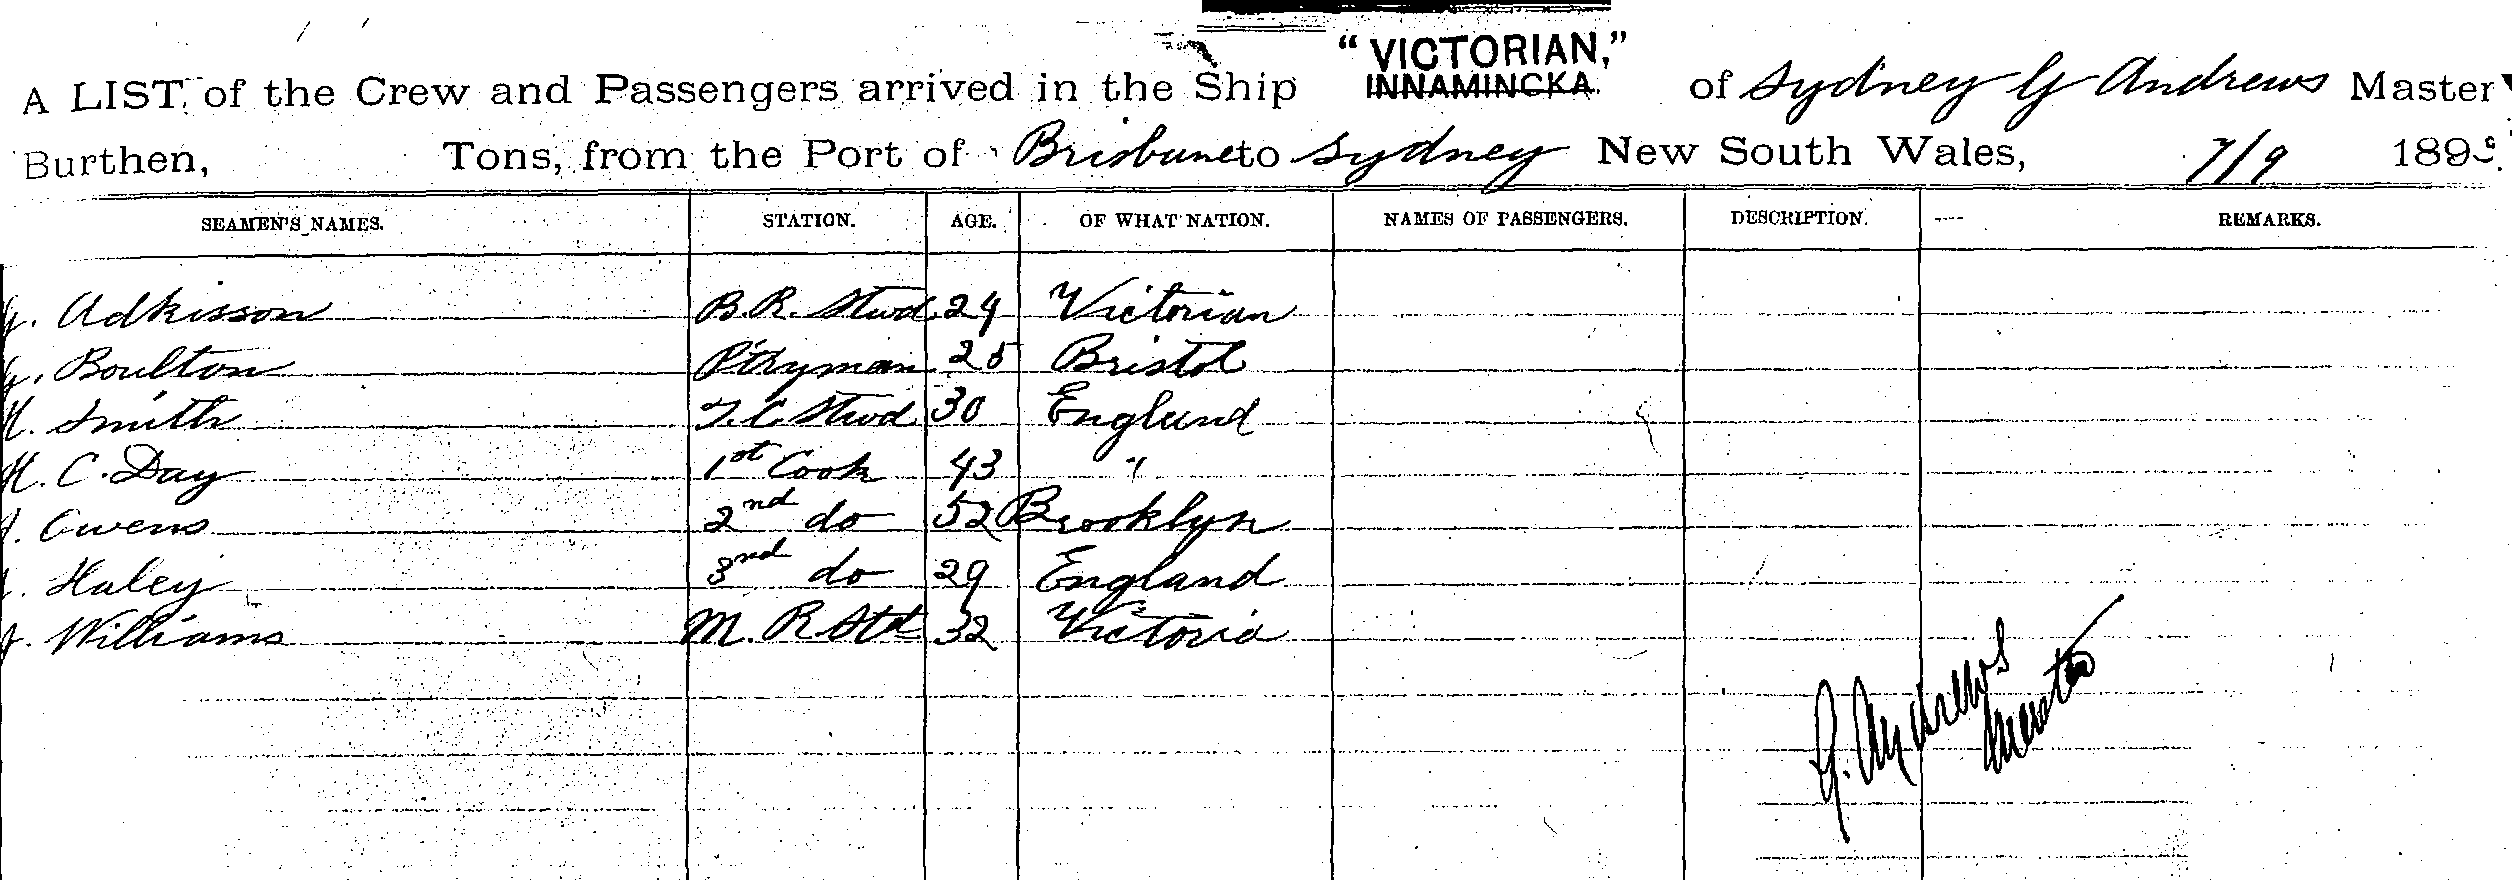 "VICTORIAN,"
A LIST of the Crew and Passengers arrived in the Ship INNAMINCKA. of Sydney G Andrews Master
Burthen, Tons, from the Port of Brisbane to Sydney New South Wales, 7/9 189
SEAMEN'S NAMES. STATION. AGE. OF WHAT NATION. NAMES OF PASSENGERS. DESCRIPTION. REMARKS.
Adkisson B.R. Stwd 24 Victorian
Boulton P'tryman 25 Bristol
H. Smith F.C. Stwd 30 England
H. C. Day 1st Cook 43 "
Owens 2nd do 52 Brooklyn
Haley 3nd do 29 England
J. Williams M. R Std 32 Victoria
G. Andrews
Master